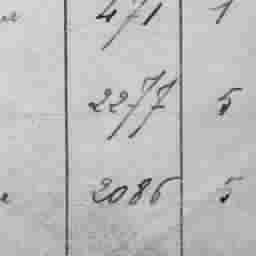 471 1
2277 5
2086 5